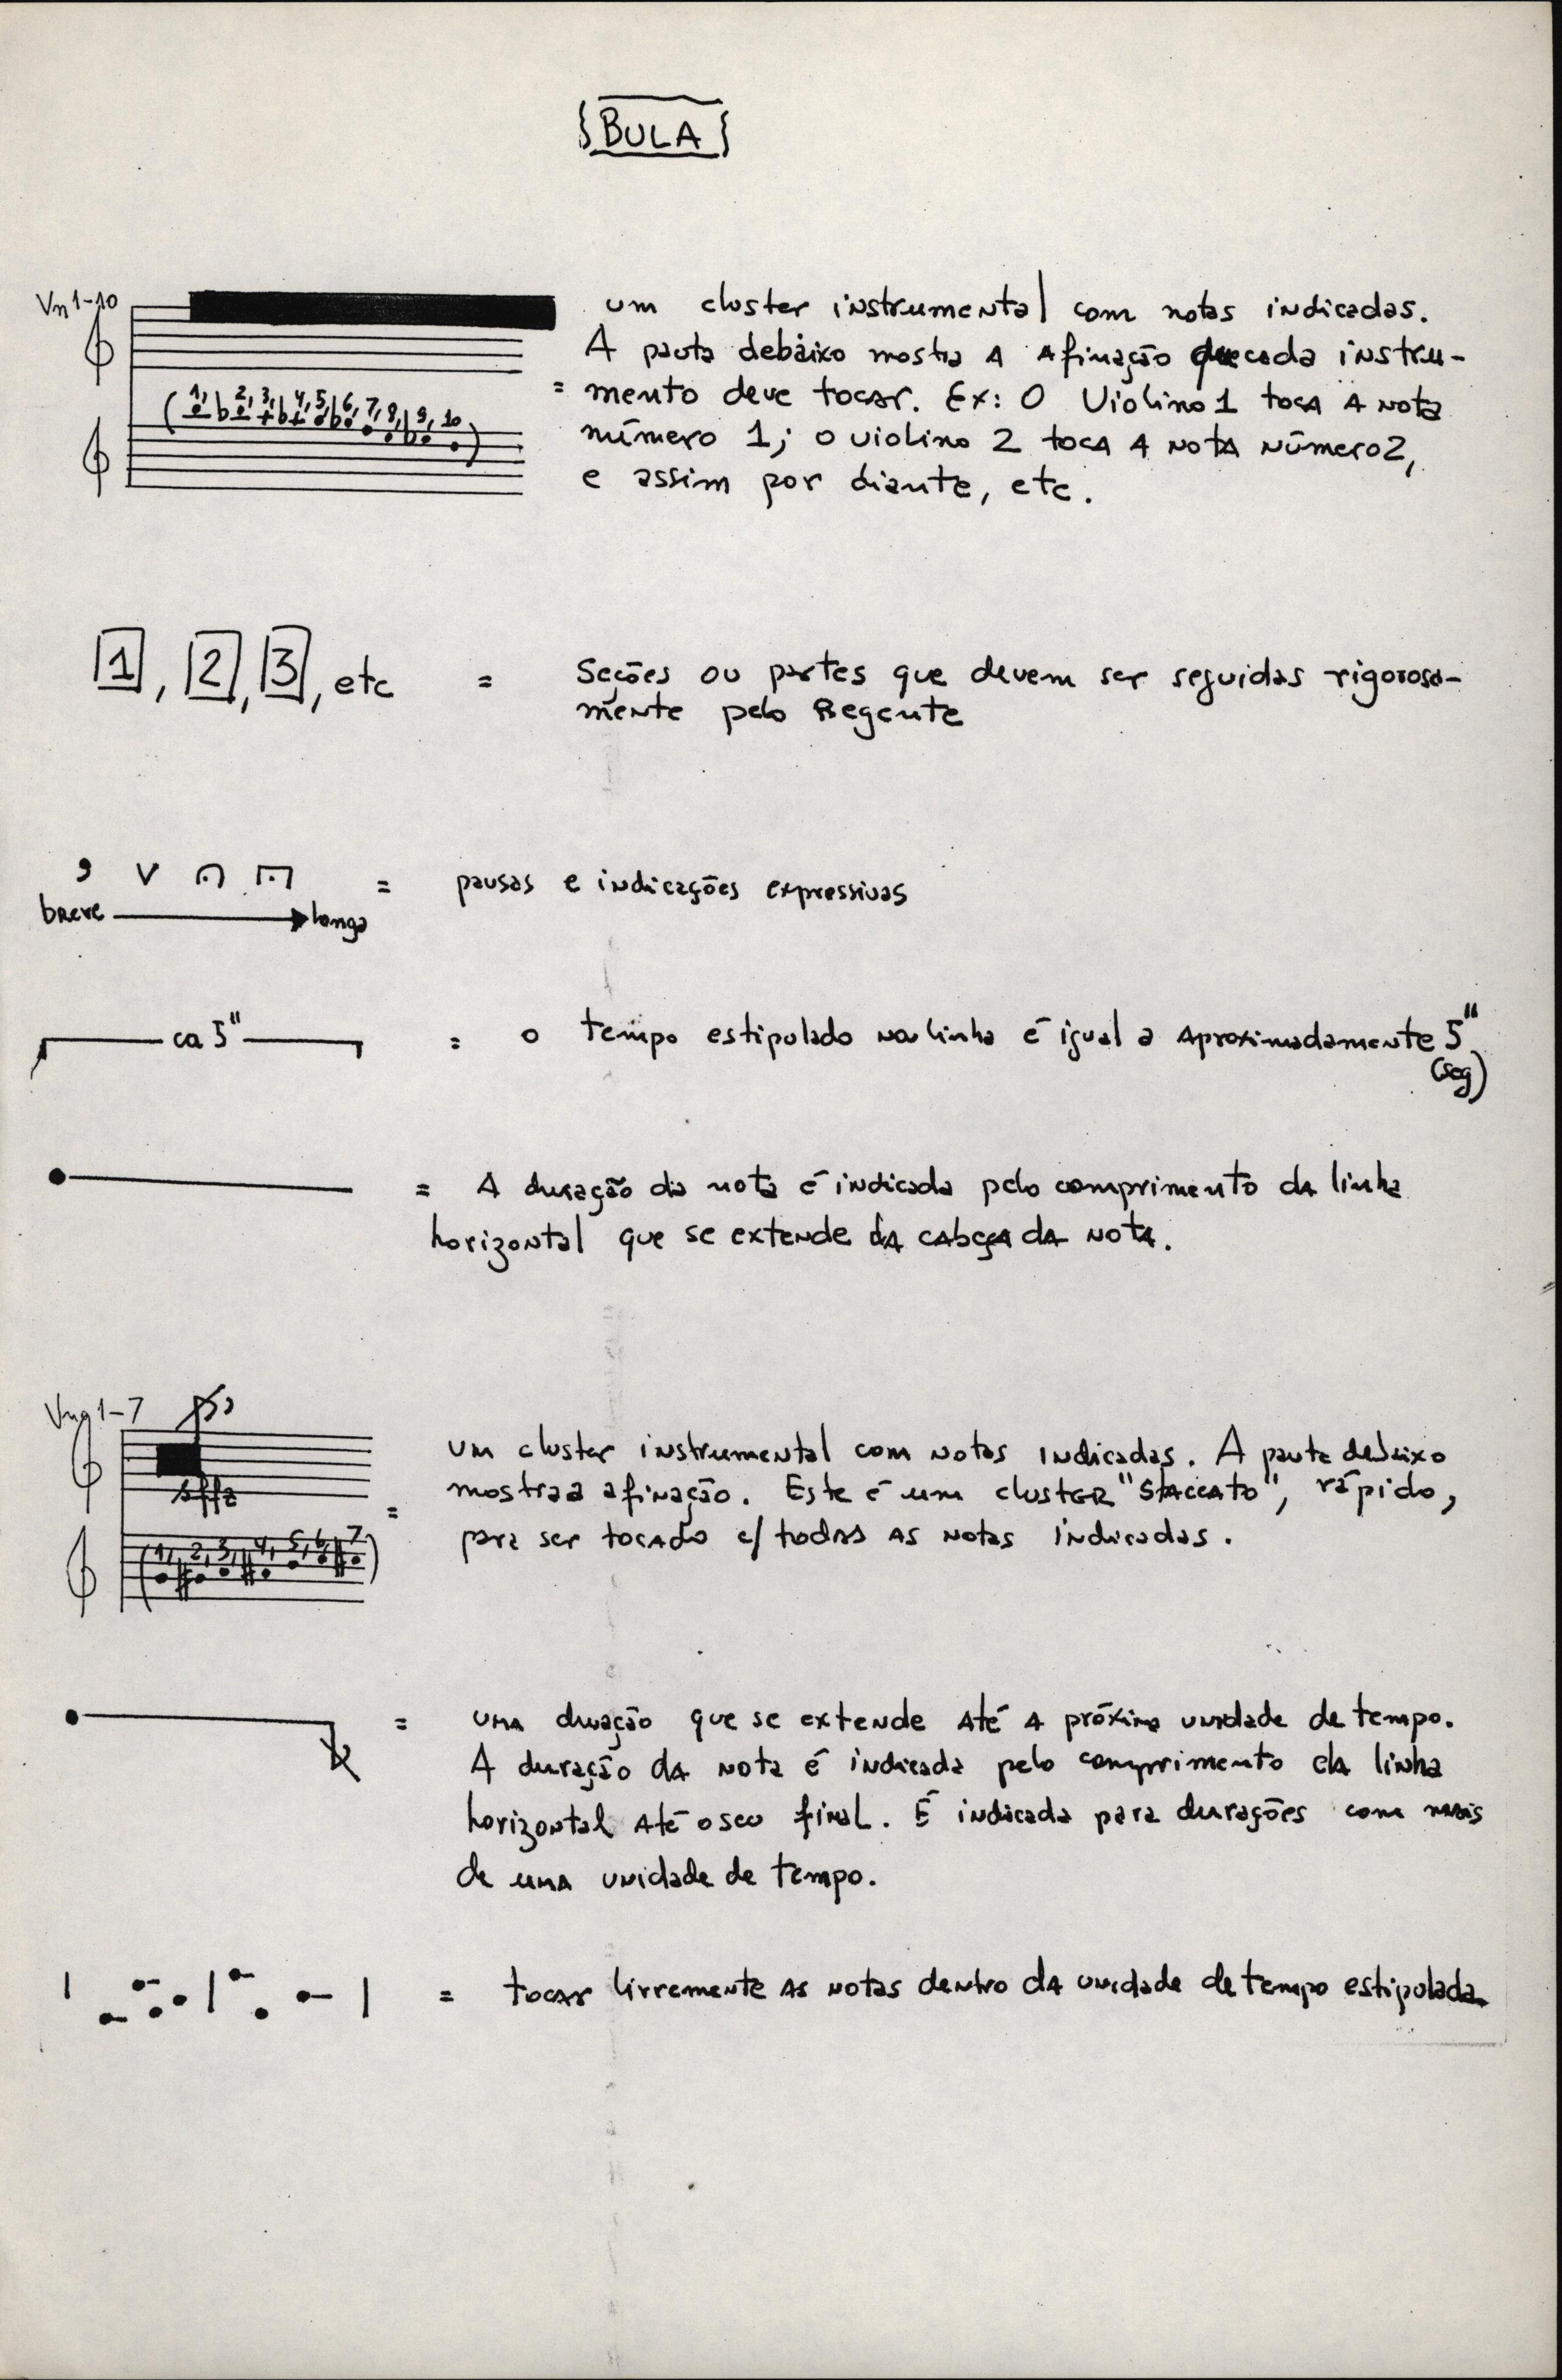 BULA
Vn 1-10
um cluster instrumental com notas indicadas.
A pauta debaixo mostra A Afinação que cada instru-
= mento deve tocar. Ex: O Violino 1 toca A nota
(1, b2, 3, b4, 5, b6, 7, 8, b9, 10)
número 1; o violino 2 toca A nota número 2,
e assim por diante, etc.
1, 2, 3, etc = Seções ou partes que devem ser seguidas rigorosa-
mente pelo Regente
, V = pausas e indicações expressivas
breve longa
ca 5" = o tempo estipulado na linha é igual a Aproximadamente 5"
(seg)
= A duração da nota é indicada pelo comprimento da linha
horizontal que se extende da cabeça da nota.
1-7
um cluster instrumental com notas indicadas. A pauta debaixo
sffz
mostra a afinação. Este é um cluster "Staccato", rápido,
=
(1, #2, 3, #4, 5, 6, #7)
para ser tocado c/ todas as notas indicadas.
= uma duração que se extende Até A próxima unidade de tempo.
A duração da nota é indicada pelo comprimento da linha
horizontal Até o seu final. É indicada para durações com mais
de uma unidade de tempo.
= tocar livremente as notas dentro da unidade de tempo estipulada